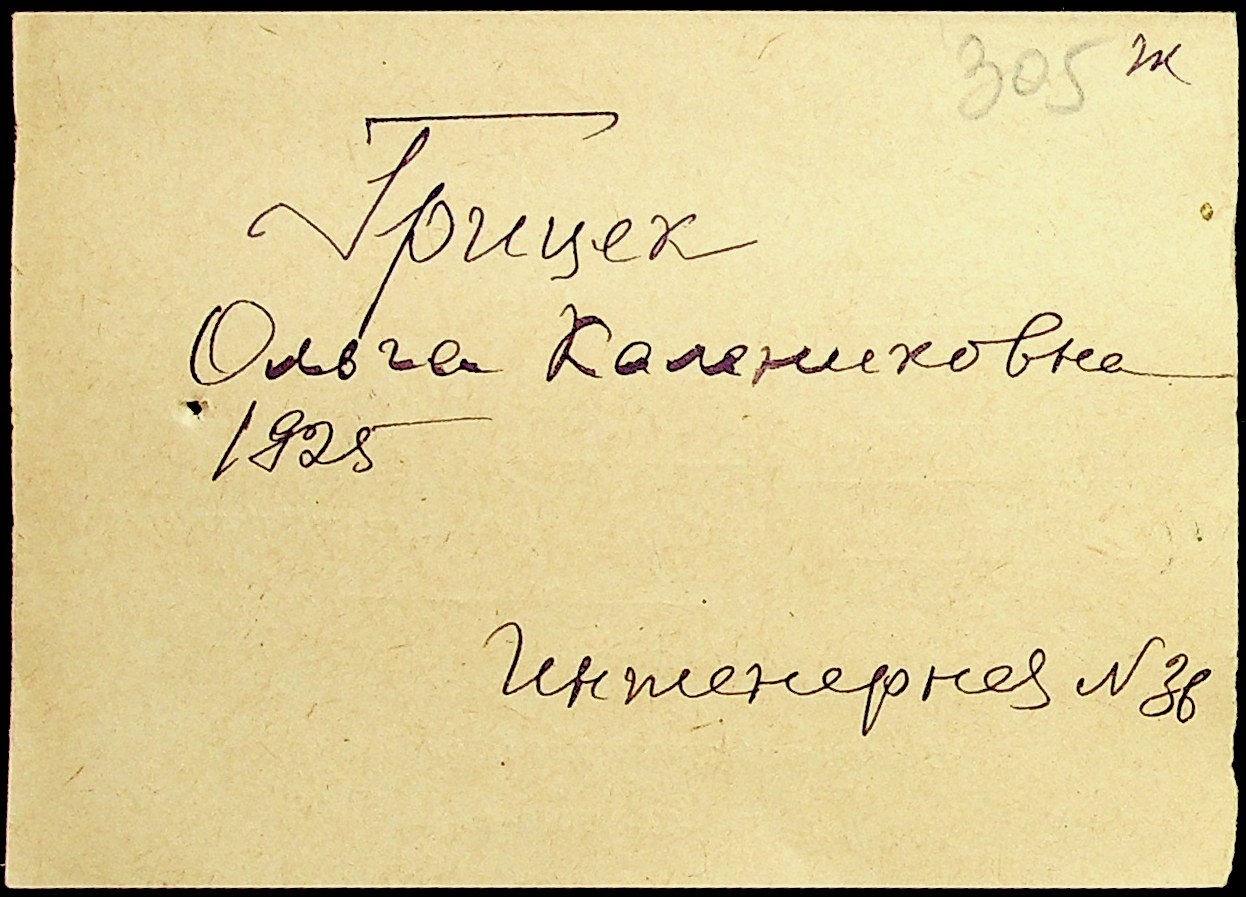 305 ж
Грицек
Ольга Калениковна
1925
Инженерная N 36